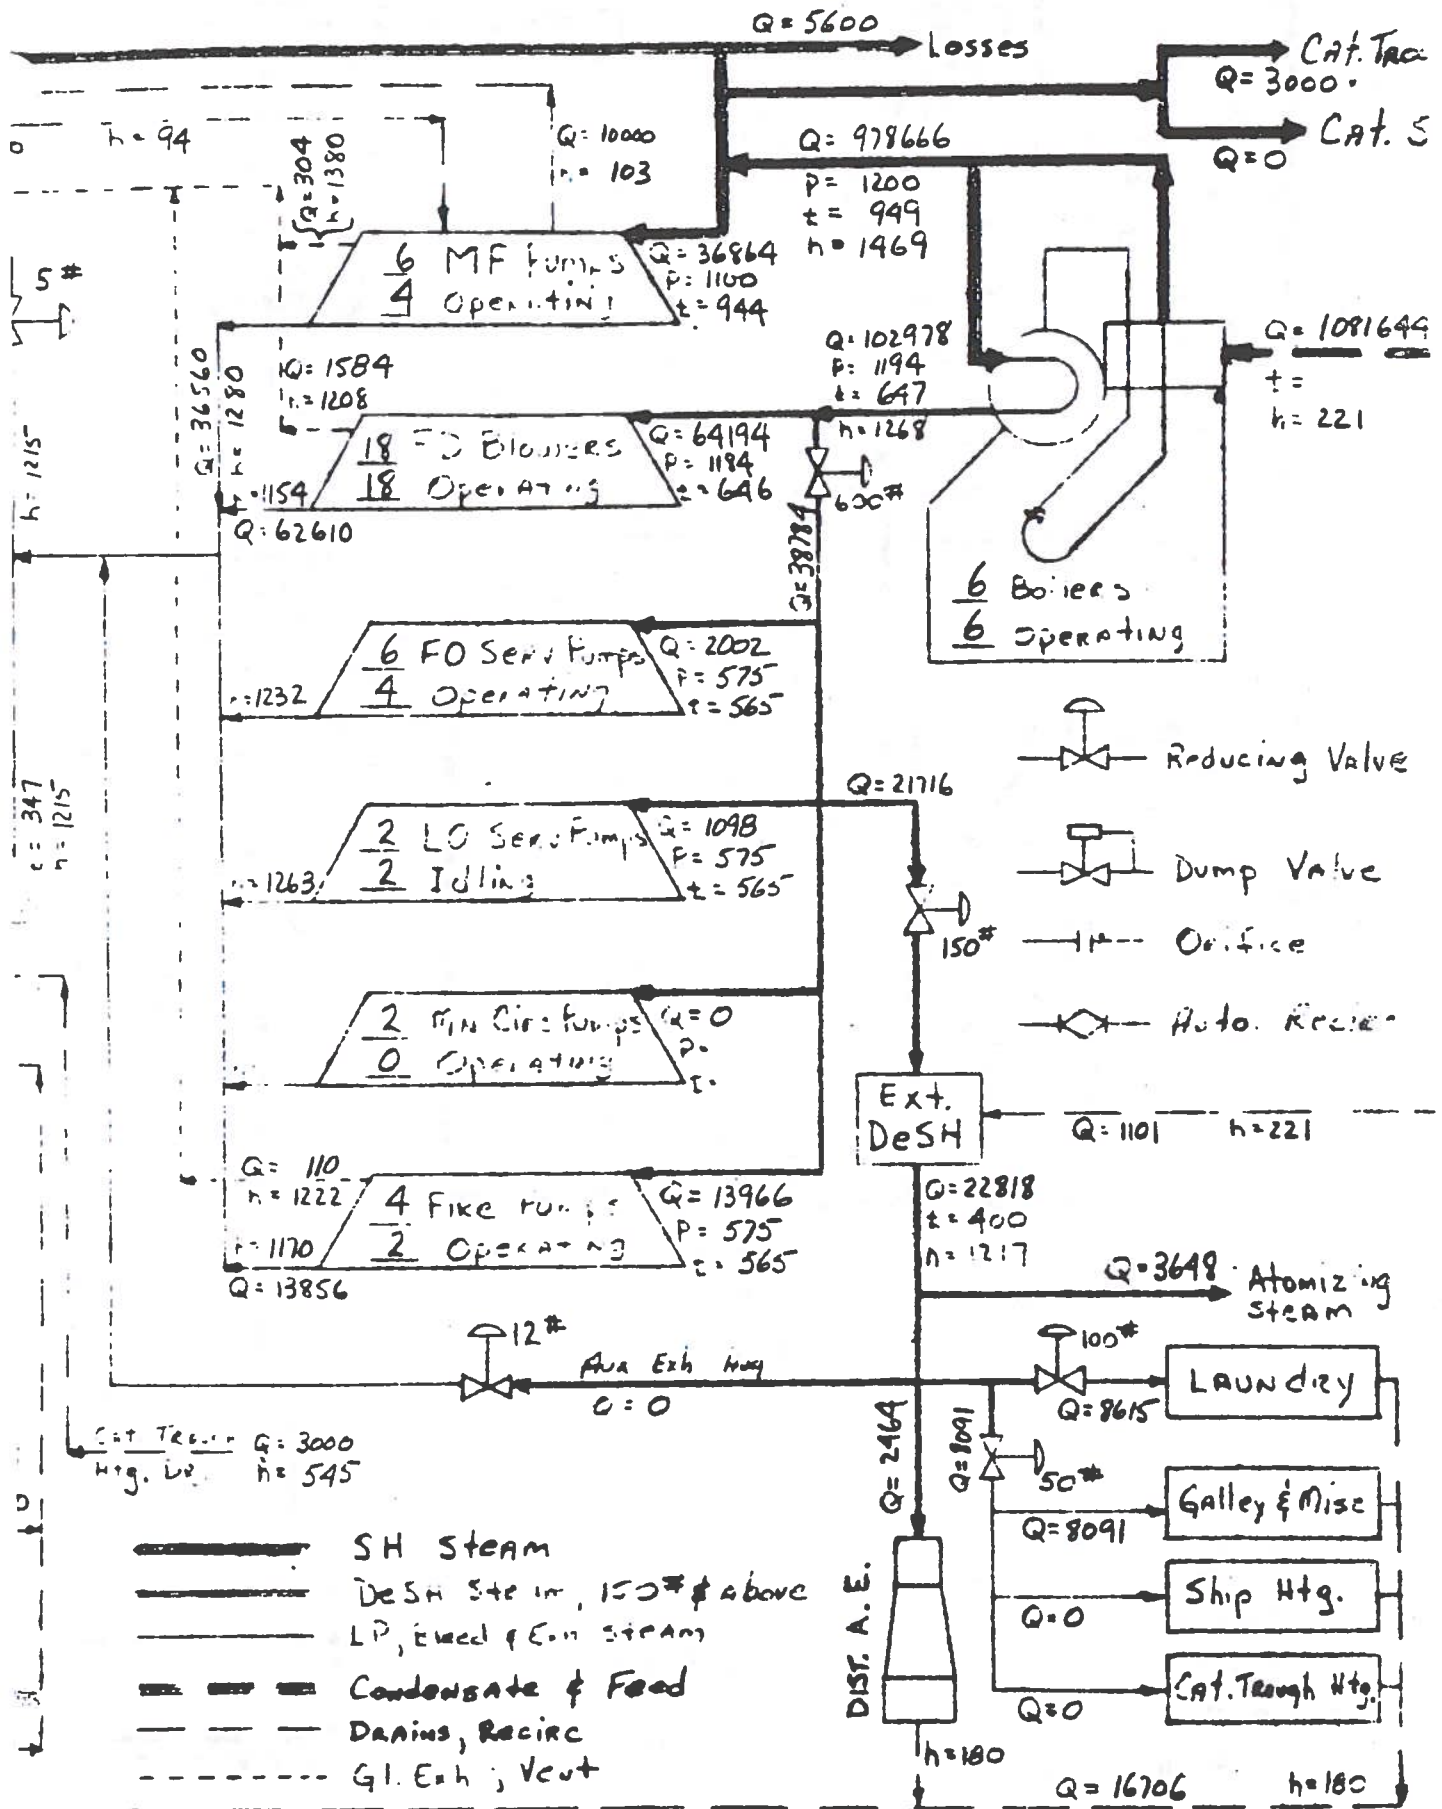 Q=5600
Losses
Cat. Tra
Q=3000.
Cat. S
Q=0
h=94
Q=304
h=1380
Q=10000
h= 103
Q= 978666
P= 1200
t= 949
h= 1469
5#
6 MF Pumps
4 Operating
Q=36864
P=1100
t=944
Q=36560
h=1280
Q=1584
h=1208
Q=102978
P= 1194
t= 647
h=1268
Q=1081644
t=
h=221
h=1215
18 FD Blowers
18 Operating
Q=64194
P=1184
t=646
h=1154
Q=62610
600#
Q=38784
6 Boilers
6 Operating
6 FO Serv Pumps
4 Operating
Q=2002
P=575
t=565
h=1232
Reducing Valve
t=347
h=1215
Q=21716
2 LO Serv Pumps
2 Idling
Q=1098
P=575
t=565
h=1263
Dump Valve
150#
Orifice
2 Mn Circ Pumps
0 Operating
Q=0
P=
t=
Auto. Recirc
Ext.
DeSH
Q=1101 h=221
Q= 110
h=1222
4 Fire Pumps
2 Operating
Q=13966
P=575
t=565
h=1170
Q=13856
Q=22818
t=400
h=1217
Q=3648
Atomizing
Steam
12#
Aux Exh Aug
Q=0
100#
Q=8615
Laundry
Cat Trough Q=3000
Htg. Dr h=545
Q=2464
Q=8091
50#
Q=8091
Galley & Misc
Q=0
Ship Htg.
Q=0
Cat. Trough Htg.
DIST. A.E.
h=180
Q=16706 h=180
SH Steam
DeSH Steam, 150# & above
LP, Bleed & Exh Steam
Condensate & Feed
Drains, Recirc
Gl. Exh, Vent